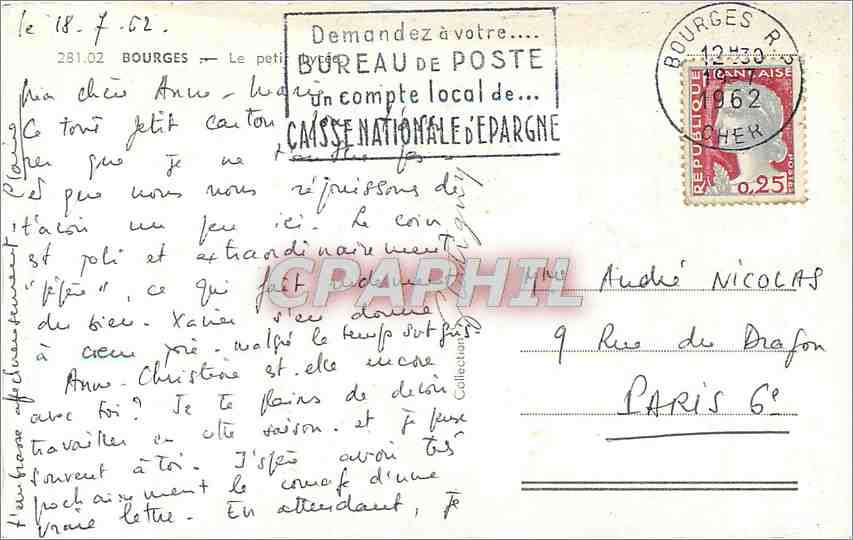 le 18.7.62.
281.02 BOURGES - Le petit Lycée
Demandez à votre....
BUREAU DE POSTE
un compte local de...
CAISSE NATIONALE D'EPARGNE
BOURGES R.P.
12H30
19-7
1962
CHER
REPUBLIQUE FRANÇAISE
POSTES
0,25
Ma chère Anne-Marie
Ce tout petit carton pour
que je ne
et que nous nous réjouissons de
t'avoir un peu ici. Le coin
est joli et extraordinairement
"pépère", ce qui fait rudement
du bien. Xavier s'en donne
à cœur joie - malgré le temps gris.
Anne-Christine est-elle encore
avec toi? Je te plains de devoir
travailler en cette saison - et je pense
souvent à toi. J'espère avoir très
prochainement le courage d'une
vraie lettre. En attendant, je
t'embrasse affectueusement
Collection
CPAPHIL
Mme André NICOLAS
9 Rue du Dragon
PARIS 6e